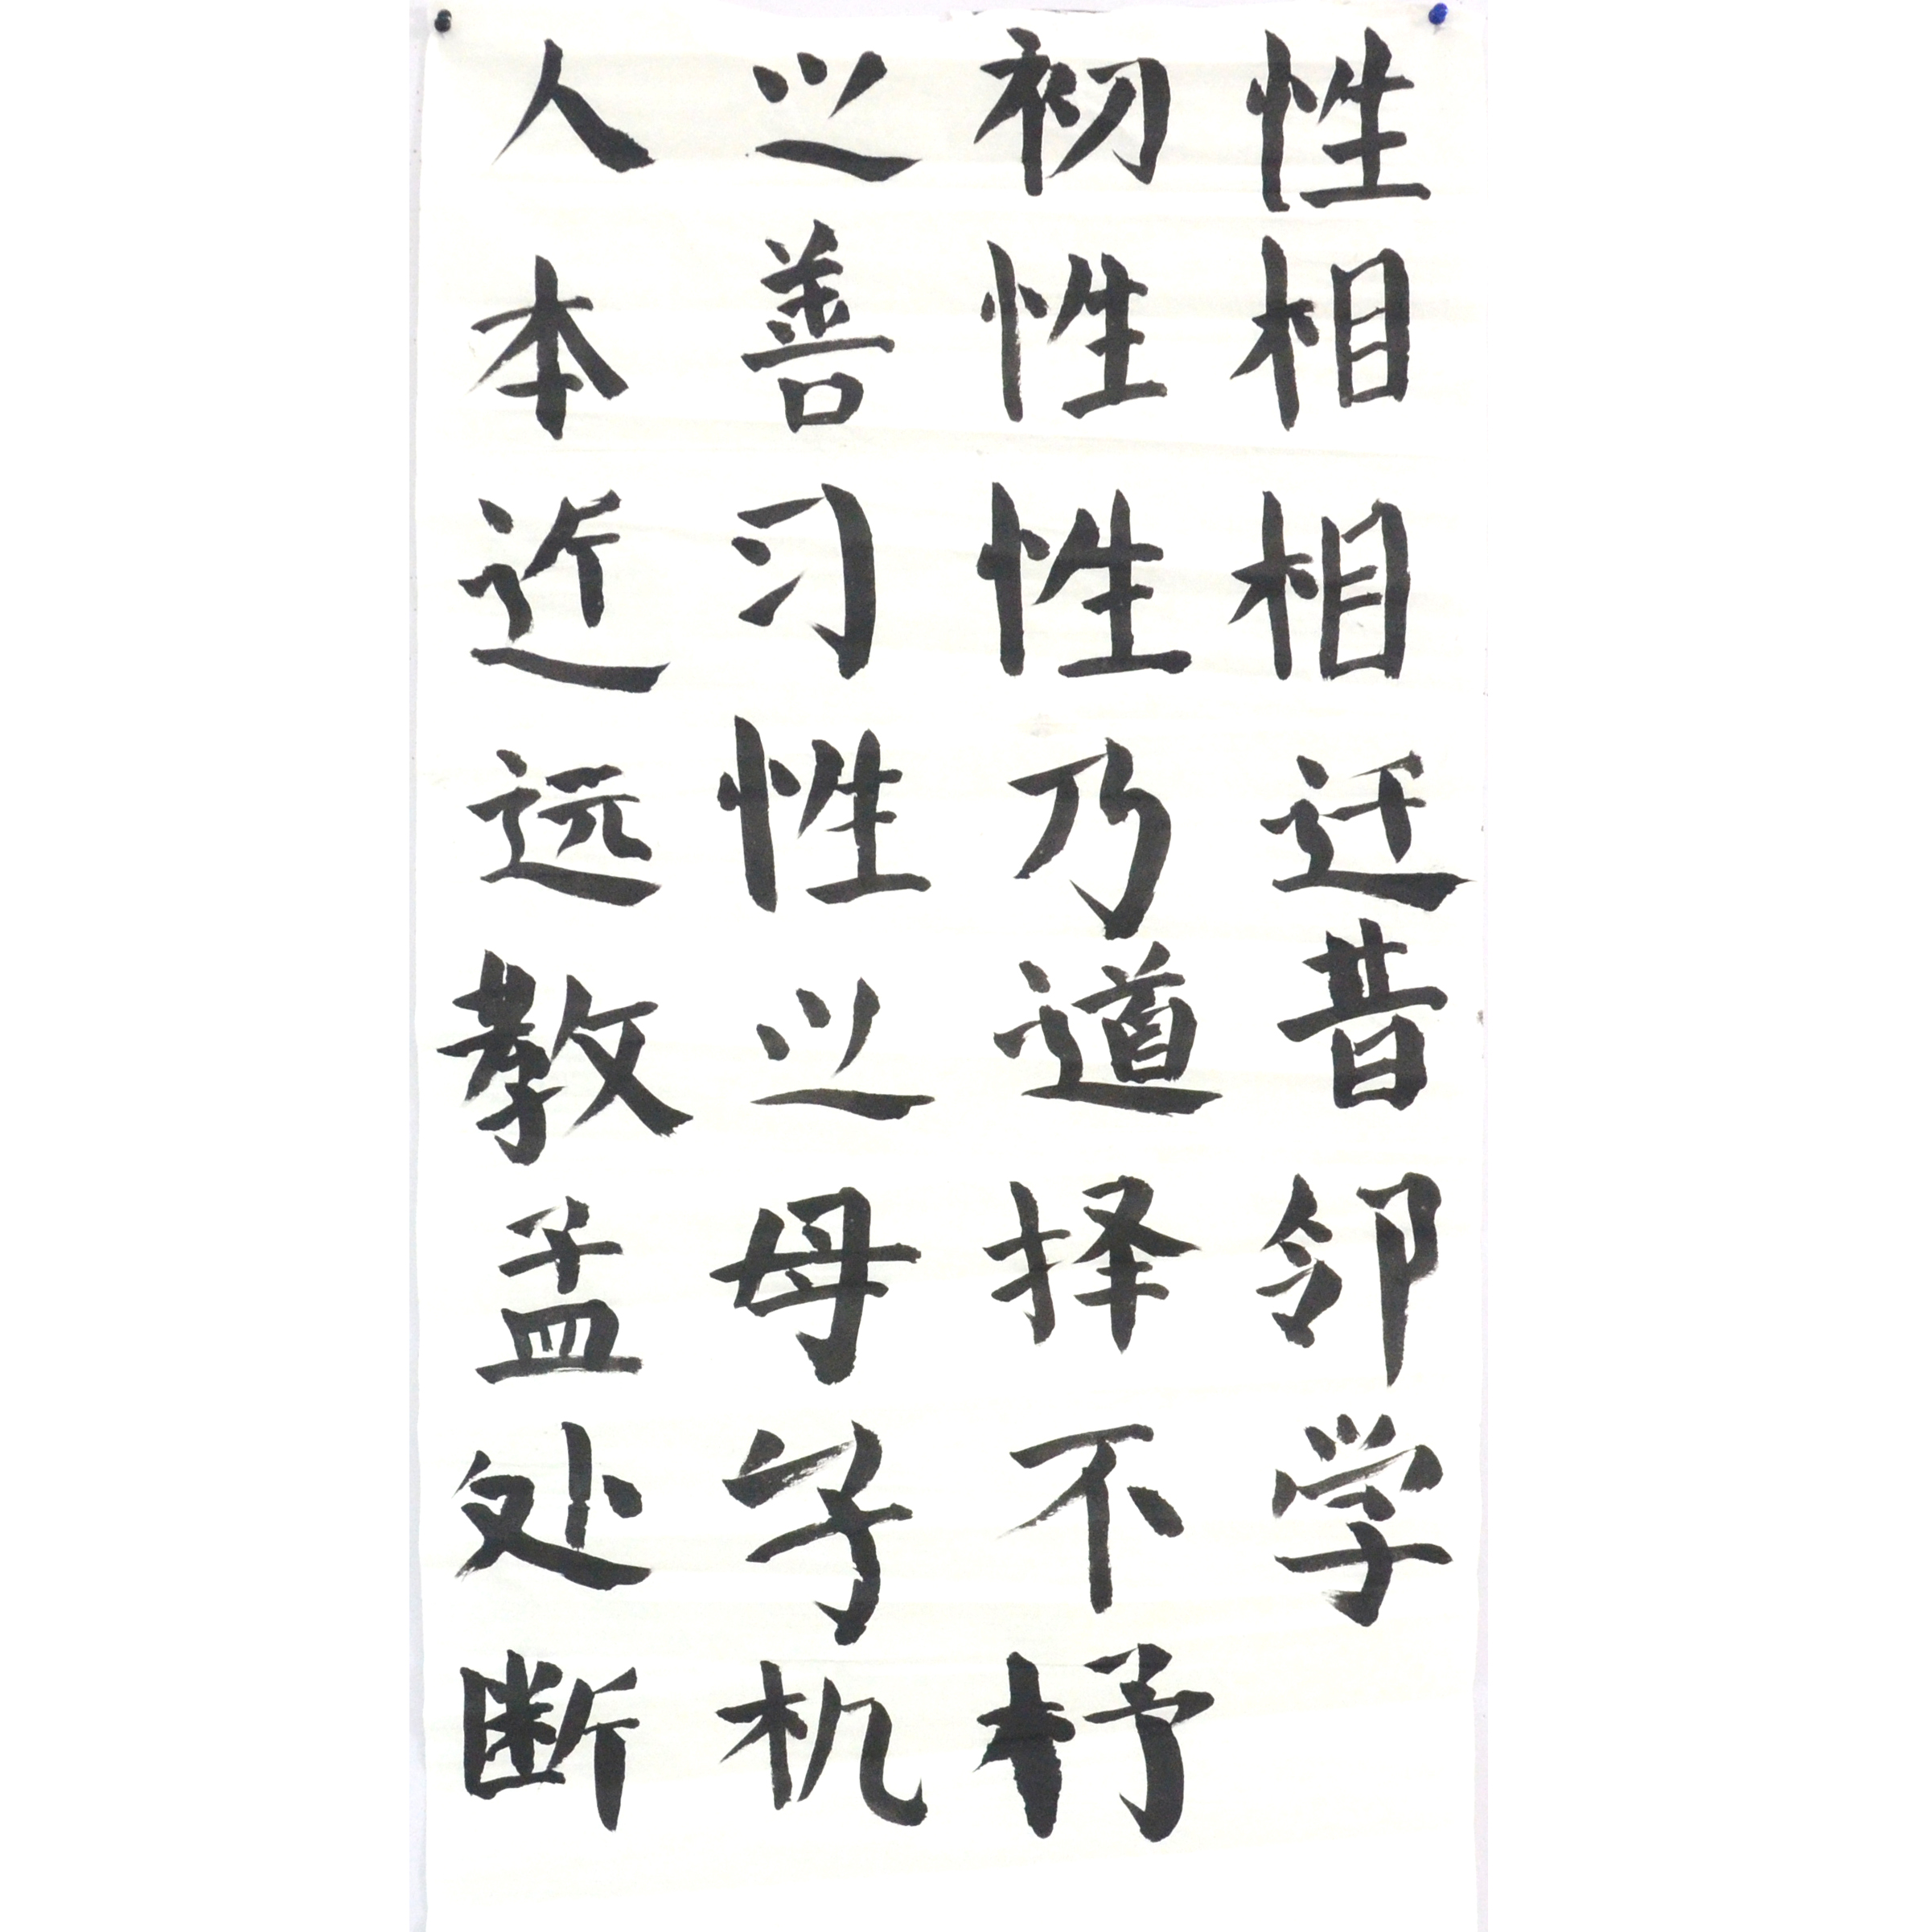 人之初性
本善性相
近习性相
远性乃迁
教之道昔
孟母择邻
处子不学
断机杼